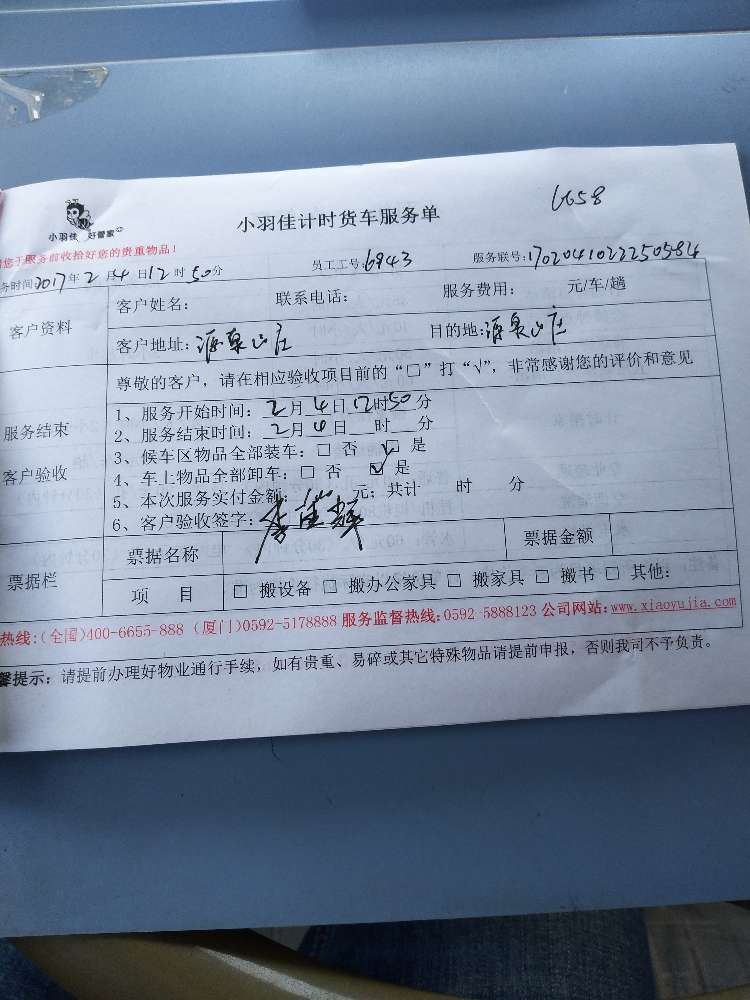 6658
小羽佳 好管家
小羽佳计时货车服务单
您于服务前收拾好您的贵重物品!
务时间:2017年2月4日12时50分 员工工号:6943 服务联号:17020410222250584
客户资料
客户姓名: 联系电话: 服务费用: 元/车/趟
客户地址:源泉山庄 目的地:源泉山庄
尊敬的客户,请在相应验收项目前的“□”打“√”,非常感谢您的评价和意见
服务结束
客户验收
1、服务开始时间:2月4日12时50分
2、服务结束时间:2月4日 时 分
3、候车区物品全部装车:□ 否 ☑ 是
4、车上物品全部卸车:□ 否 ☑ 是
5、本次服务实付金额: 元;共计 时 分
6、客户验收签字:
票据栏
票据名称 票据金额
项 目 □ 搬设备 □ 搬办公家具 □ 搬家具 □ 搬书 □ 其他:
热线:(全国)400-6655-888 (厦门)0592-5178888 服务监督热线:0592-5888123 公司网站:www.xiaoyujia.com
馨提示:请提前办理好物业通行手续,如有贵重、易碎或其它特殊物品请提前申报,否则我司不予负责。